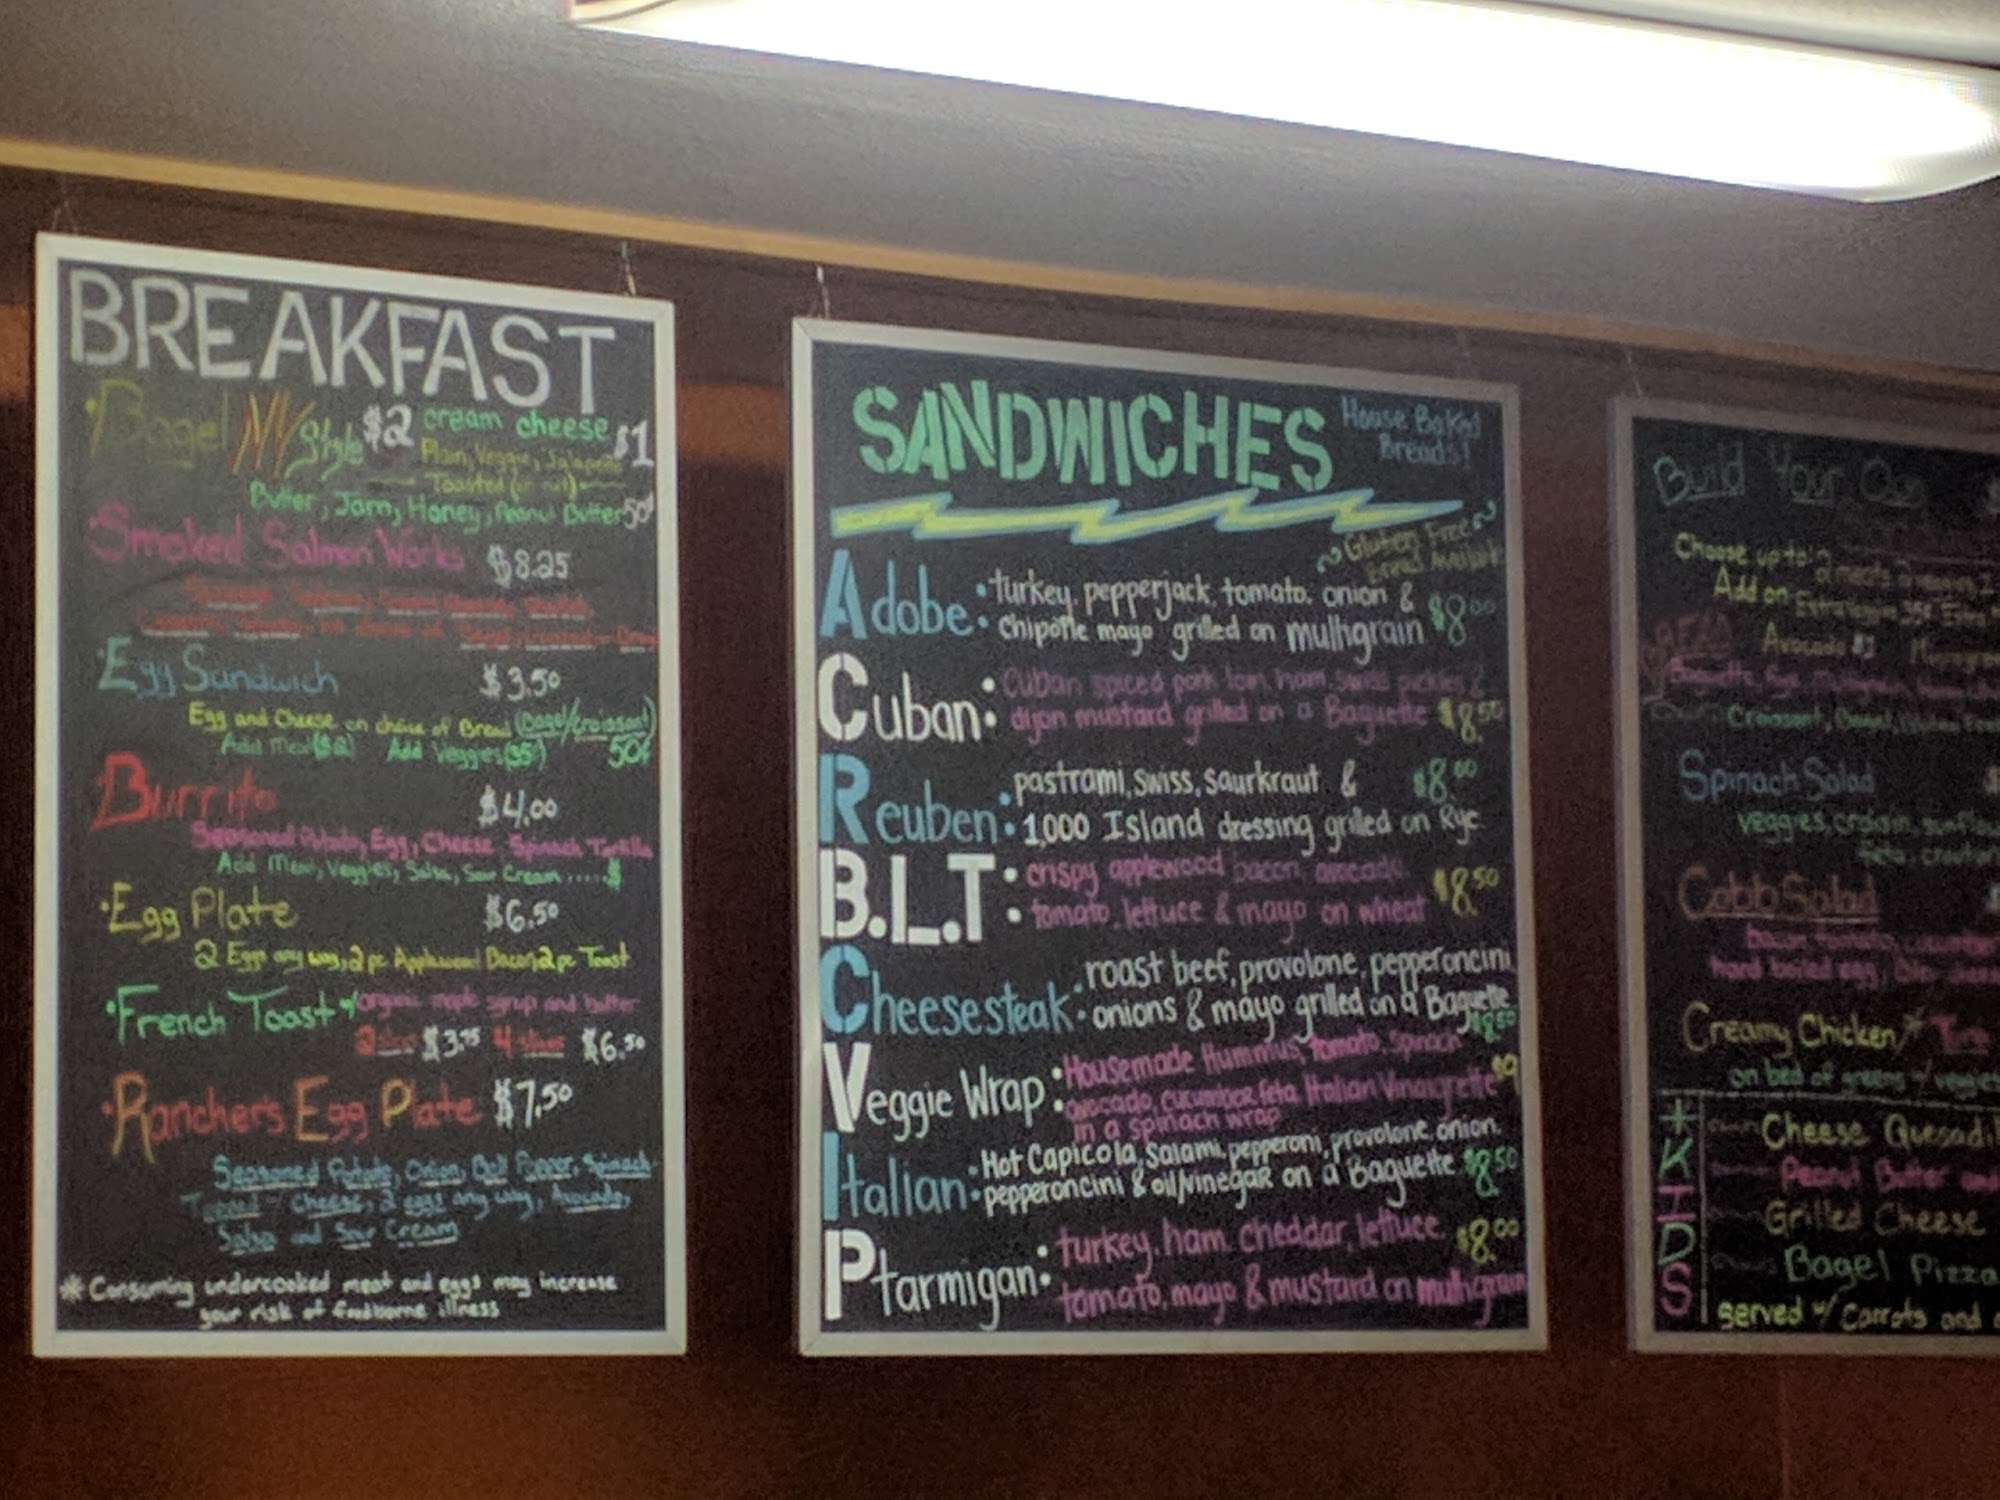 BREAKFAST
• Bagel NY Style $2 cream cheese $1
Plain, Veggie, Jalapeño
Toasted (or not)
Butter, Jam, Honey, Peanut Butter 50¢
• Smoked Salmon Works $8.25
• Egg Sandwich $3.50
Egg and Cheese on choice of Bread (Bagel/Croissant)
Add Meat ($2) Add Veggies (35¢) 50¢
• Burrito $4.00
Seasoned Potato, Egg, Cheese Spinach Tortilla
Add Meat, Veggies, Salsa, Sour Cream ..... $
• Egg Plate $6.50
2 Eggs any way, 2 pc Applewood Bacon, 2 pc Toast
• French Toast w/ organic maple syrup and butter
2 slices $3.75 4 slices $6.50
• Rancher's Egg Plate $7.50
Seasoned Potato, Onion, Bell Pepper, Spinach
Topped Cheese, 2 eggs any way, Avocado,
Salsa and Sour Cream
* Consuming undercooked meat and eggs may increase
your risk of foodborne illness
SANDWICHES
House Baked
Breads!
~ Gluten Free ~
Bread Available
Adobe: turkey, pepperjack, tomato, onion &
chipotle mayo grilled on multigrain $8.00
Cuban: Cuban spiced pork loin, ham, swiss pickles &
dijon mustard grilled on a Baguette $8.50
Reuben: pastrami, swiss, saurkraut & $8.00
1,000 Island dressing grilled on Rye
B.L.T: crispy applewood bacon, avocado,
tomato, lettuce & mayo on wheat $8.50
Cheesesteak: roast beef, provolone, pepperoncini,
onions & mayo grilled on a Baguette
$8.50
Veggie Wrap: Housemade Hummus, tomato, spinach
avocado, cucumber, feta, Italian Vinaigrette $9
in a spinach wrap
Italian: Hot Capicola, Salami, pepperoni, provolone, onion,
pepperoncini & oil/vinegar on a Baguette $8.50
Ptarmigan: turkey, ham, cheddar, lettuce $8.00
tomato, mayo & mustard on multigrain
Build Your Own
Choose up to 2 meats
Add on Extra Veggies 35¢ Extra
Avocado $1
Croissant, Bagel, Gluten Free
Spinach Salad
veggies,
Feta,
Cobb Salad
bacon, tomato, cucumber
hard boiled egg,
Creamy Chicken
on bed of greens w/ veggies
* KIDS
Cheese Quesadil
Peanut Butter and
Grilled Cheese
Bagel Pizza
served w/ Carrots and